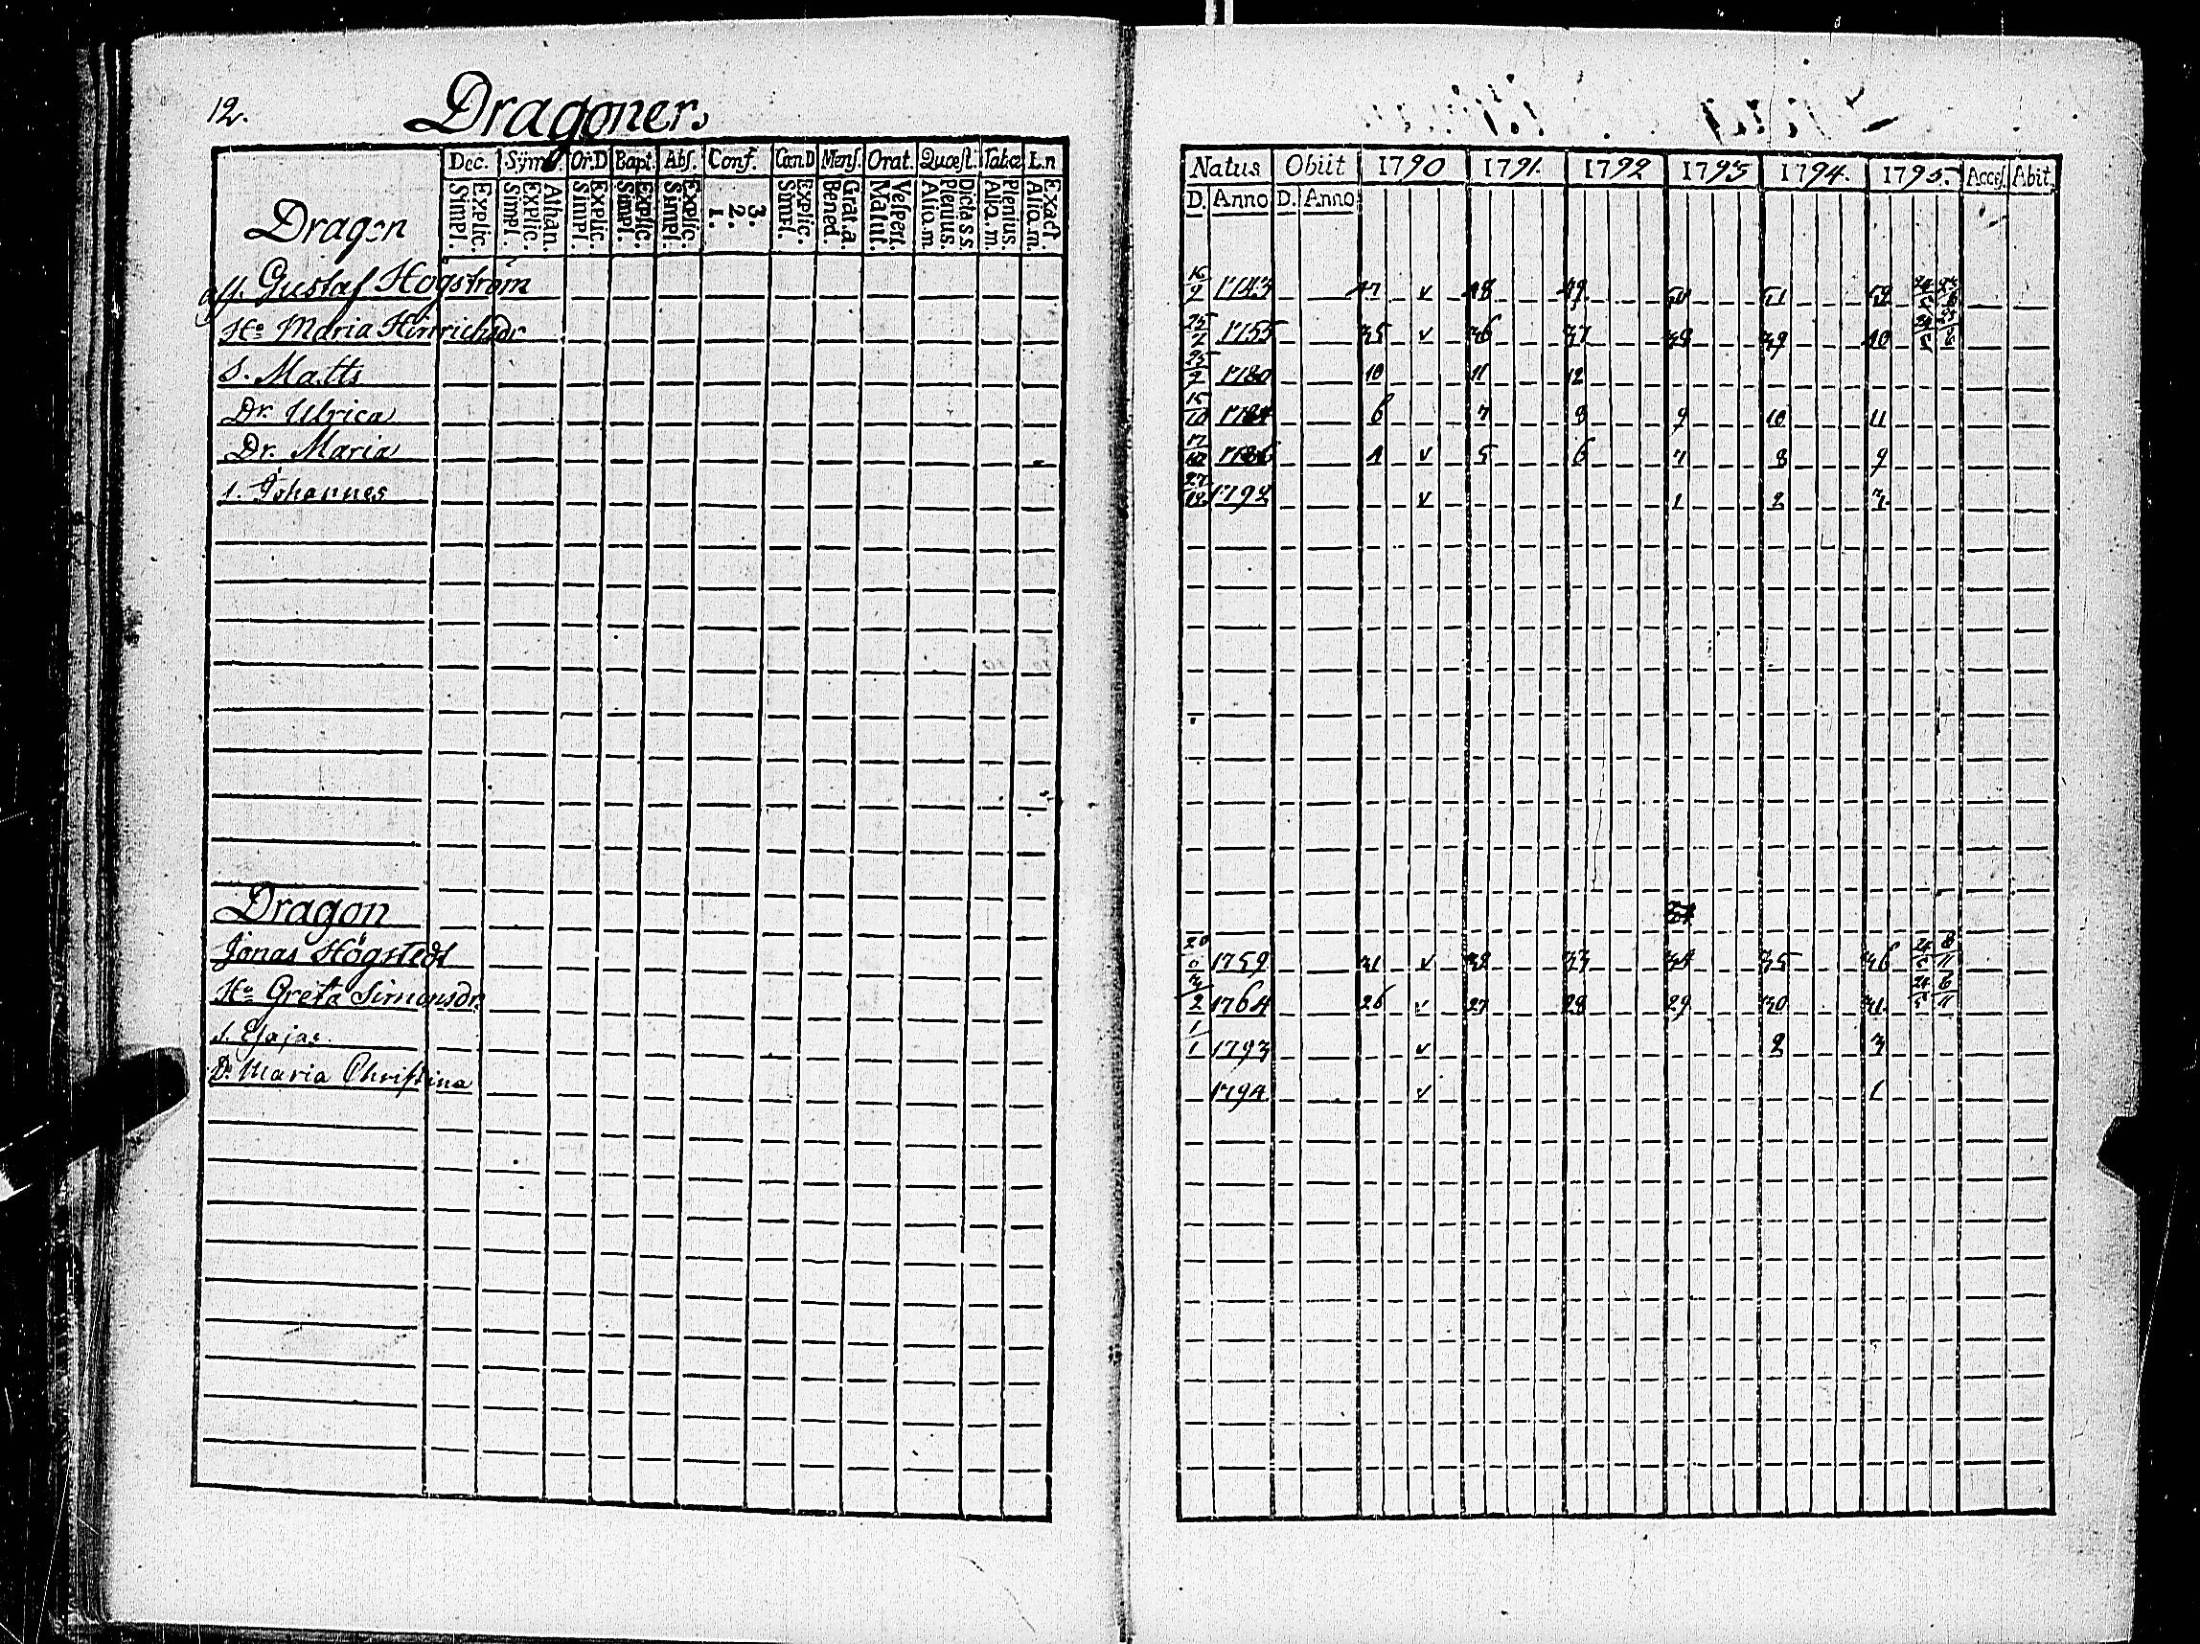 12.
Dragoner.
Dec. Symb. Or.D Bapt. Abs. Conf. Cæn.D Mens. Orat. Quæst. Tabæ L.n
Explic. Simpl. Athan. Explic. Simpl. Explic. Simpl. Explic. Simpl. Explic. Simpl. 3. 2. 1. Explic. Simpl. Grat. a. Bened. Vespert. Matut. Dicta s.s. Plenius. Aliq.m. Plenius. Aliq.m. Exact. Aliq.m.
Dragon
aff. Gustaf Hogstrom
Ho Maria Hinrichsdr
S. Matts
Dr. Ulrica
Dr. Maria
s. Johannes
Dragon
Jonas Högstedt
Ho Greta Simonsdr
s. Esajas
Dr Maria Christina
Natus Obiit 1790 1791. 1792 1793 1794. 1795. Acces. Abit
D. Anno D. Anno
16/9 1743 47 v 48 49 50 51 52
25/2 1755 35 v 36 37 38 39 40
25/9 1780 10 11 12
15/10 1784 6 7 8 9 10 11
17/10 1786 4 v 5 6 7 8 9
27/12 1792 v 1 2 3
1759 31 v 32 33 34 35 36
3/2 1764 26 v 27 28 29 30 31
1/1 1793 v 2 3
1794 v 1